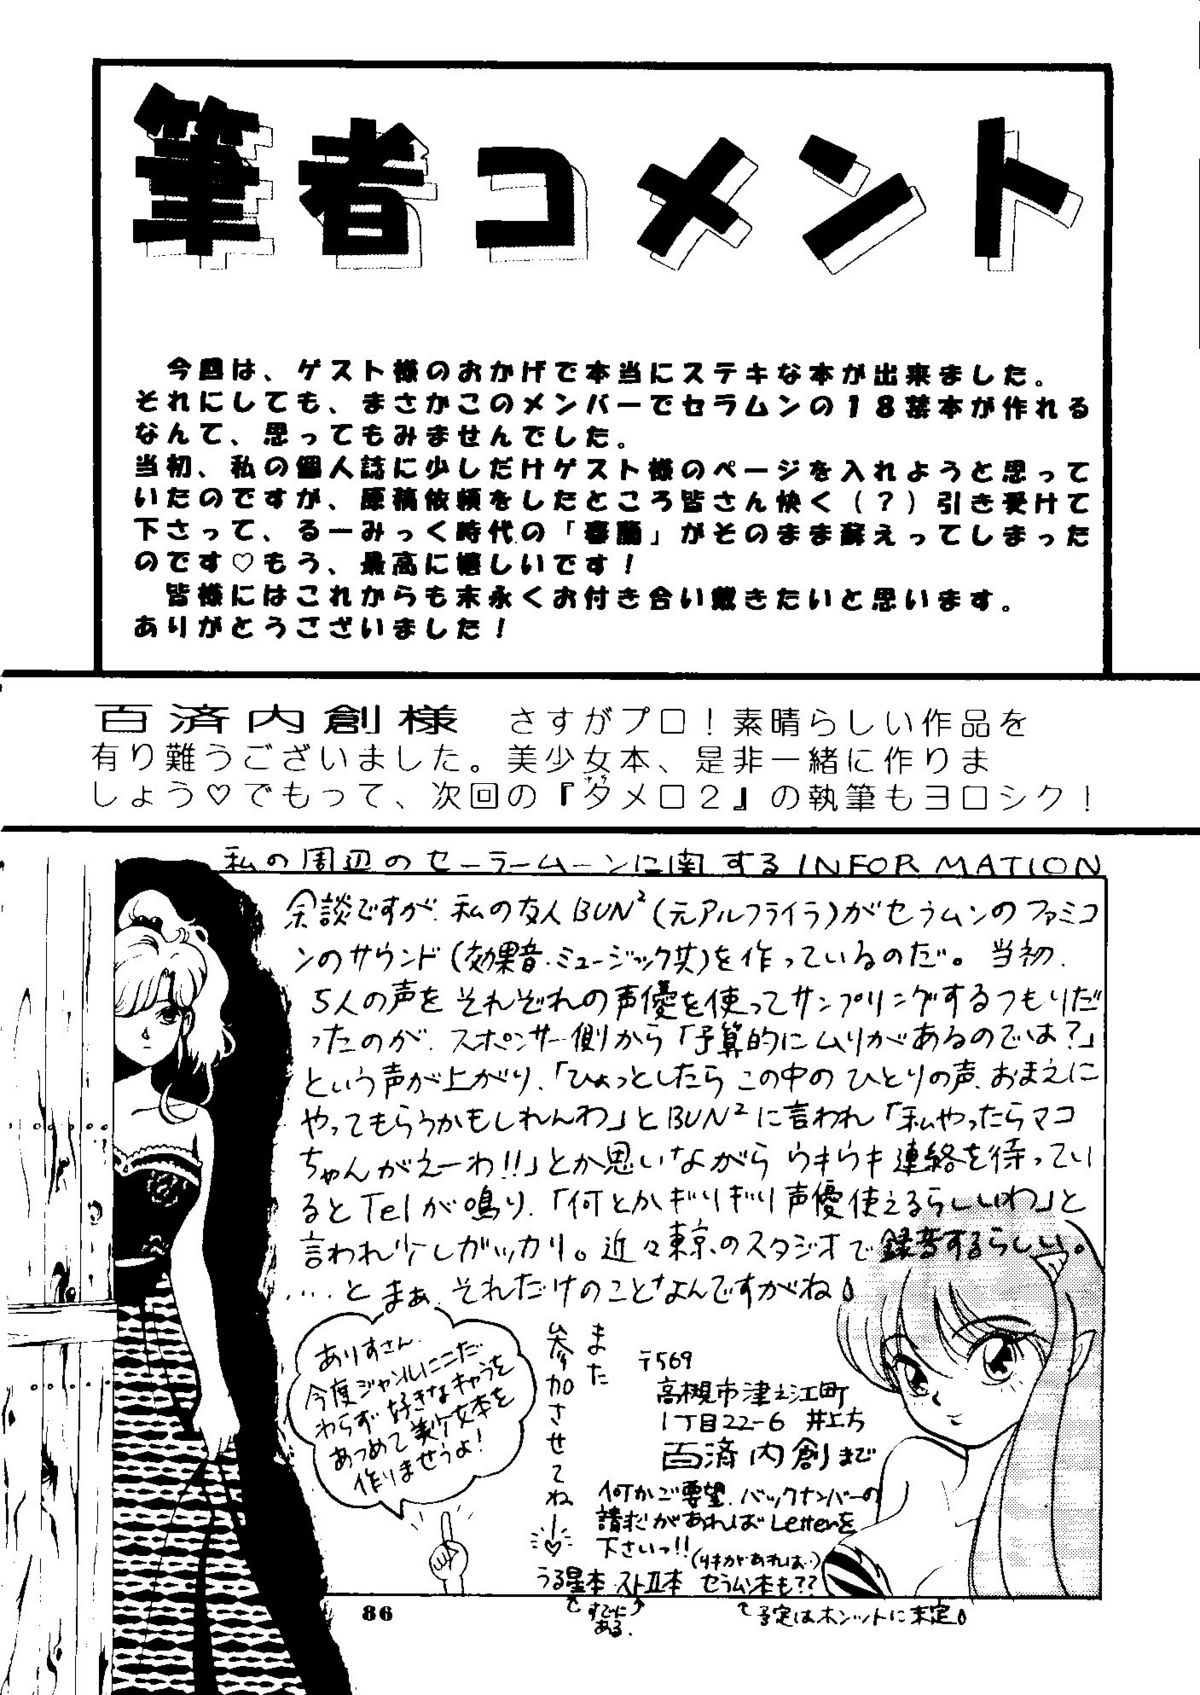 筆者コメント
今回は、ゲスト様のおかげで本当にステキな本が出来ました。
それにしても、まさかこのメンバーでセラムンの18禁本が作れる
なんて、思ってもみませんでした。
当初、私の個人誌に少しだけゲスト様のページを入れようと思って
いたのですが、原稿依頼をしたところ皆さん快く(?)引き受けて
下さって、るーみっく時代の「春蘭」がそのまま蘇えってしまった
のです♡もう、最高に嬉しいです!
皆様にはこれからも末永くお付き合い戴きたいと思います。
ありがとうございました!
百済内創様 さすがプロ!素晴らしい作品を
有り難うございました。美少女本、是非一緒に作りま
しょう♡でもって、次回の『タメロ2』の執筆もヨロシク!
私の周辺のセーラームーンに関するINFORMATION
余談ですが、私の友人BUN²(元アルフライラ)がセラムンのファミコ
ンのサウンド(効果音・ミュージック共)を作っているのだ。当初、
5人の声をそれぞれの声優を使ってサンプリングするつもりだ
ったのが、スポンサー側から「予算的にムリがあるのでは?」
という声が上がり、「ひょっとしたらこの中のひとりの声、おまえに
やってもらうかもしれんわ」とBUN²に言われ「私やったらマコ
ちゃんがえーわ!!」とか思いながらウキウキ連絡を待ってい
るとTelが鳴り、「何とかギリギリ声優使えるらしいわ」と
言われ少しガッカリ。近々東京のスタジオで録音するらしい。
……とまぁ、それだけのことなんですがね
ありすさん、
今度ジャンルにこだ
わらず好きなキャラを
あつめて美少女本を
作りませうよ!
また
参加させてね!
〒569
高槻市津之江町
1丁目22-6 井上方
百済内創まで
何かご要望、バックナンバーの
請求があればLetterを
下さいっ!!
うる星本 ストⅡ本 セラムン本も??
すでに
ある。
予定はホンットに未定
86